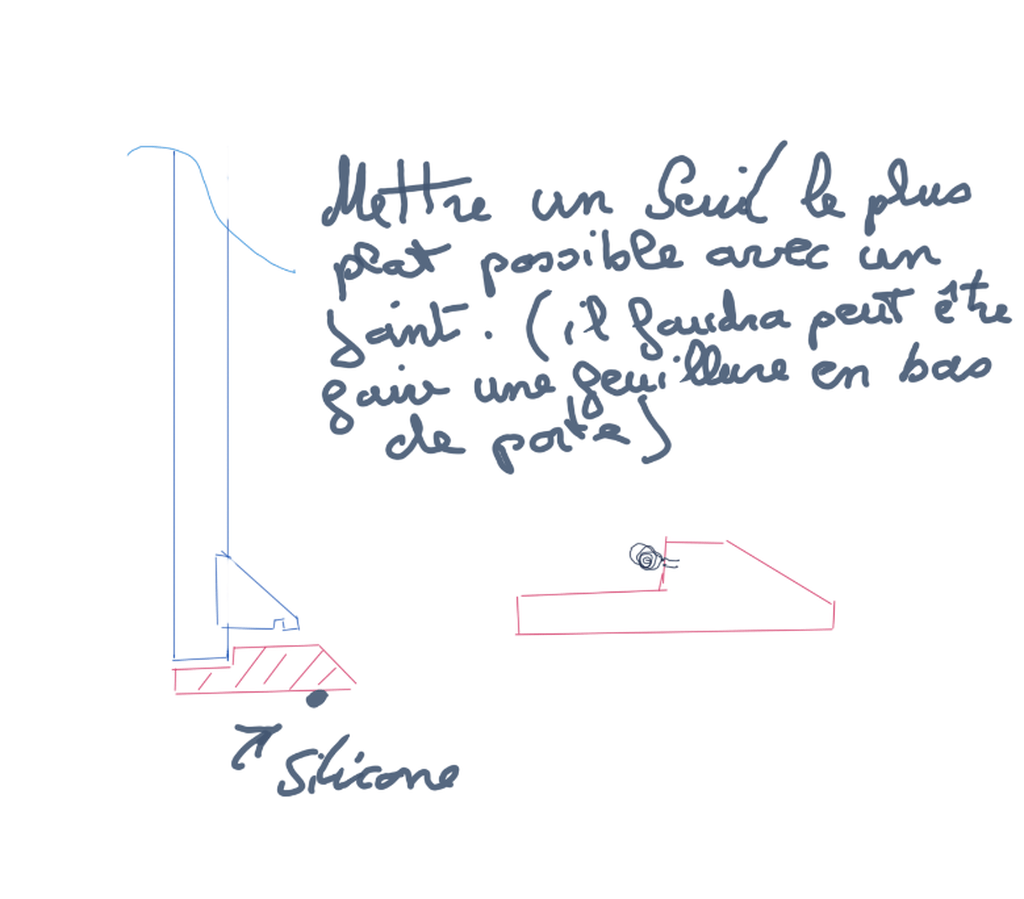 Mettre un Seuil le plus
plat possible avec un
joint. (il faudra peut être
faire une feuillure en bas
de porte)
Silicone